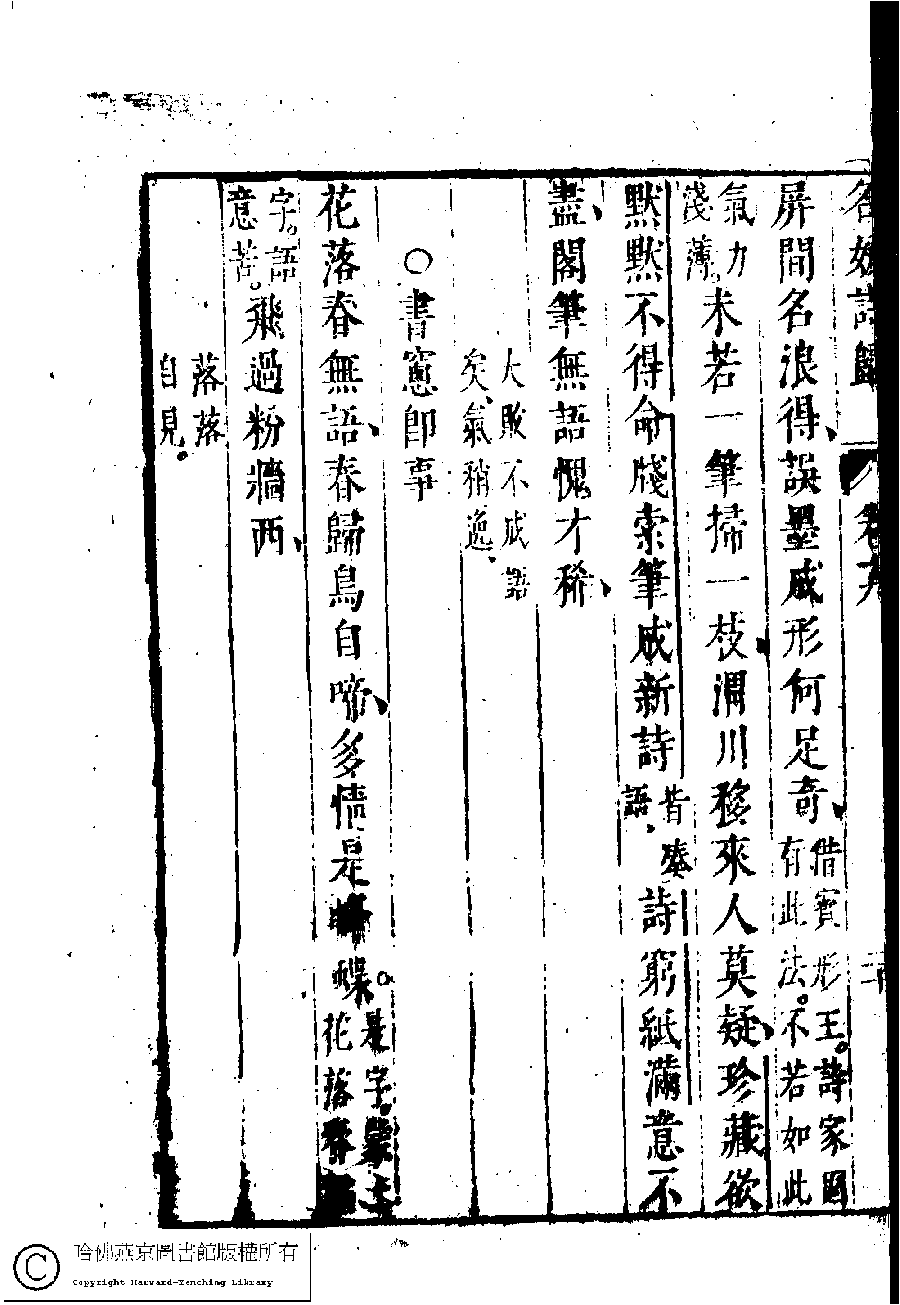 名媛詩歸 卷六
屏間名浪得誤墨成形何足奇 借賓形王。詩家固有此法。不若如此
氣力淺薄。未若一筆掃一枝渭川移來人莫疑珍藏欲
默默不得命牋索筆成新詩 昔湊語 詩窮紙滿意不
盡閣筆無語愧才稀
大敗不成語矣氣稍逸
○書窻卽事
花落春無語春歸鳥自啼多情是蜂蝶 是字。蒙上花落春
字。語意苦。飛過粉牆西
落落自見。
哈佛燕京圖書館版權所有
Copyright Harvard-Yenching Library